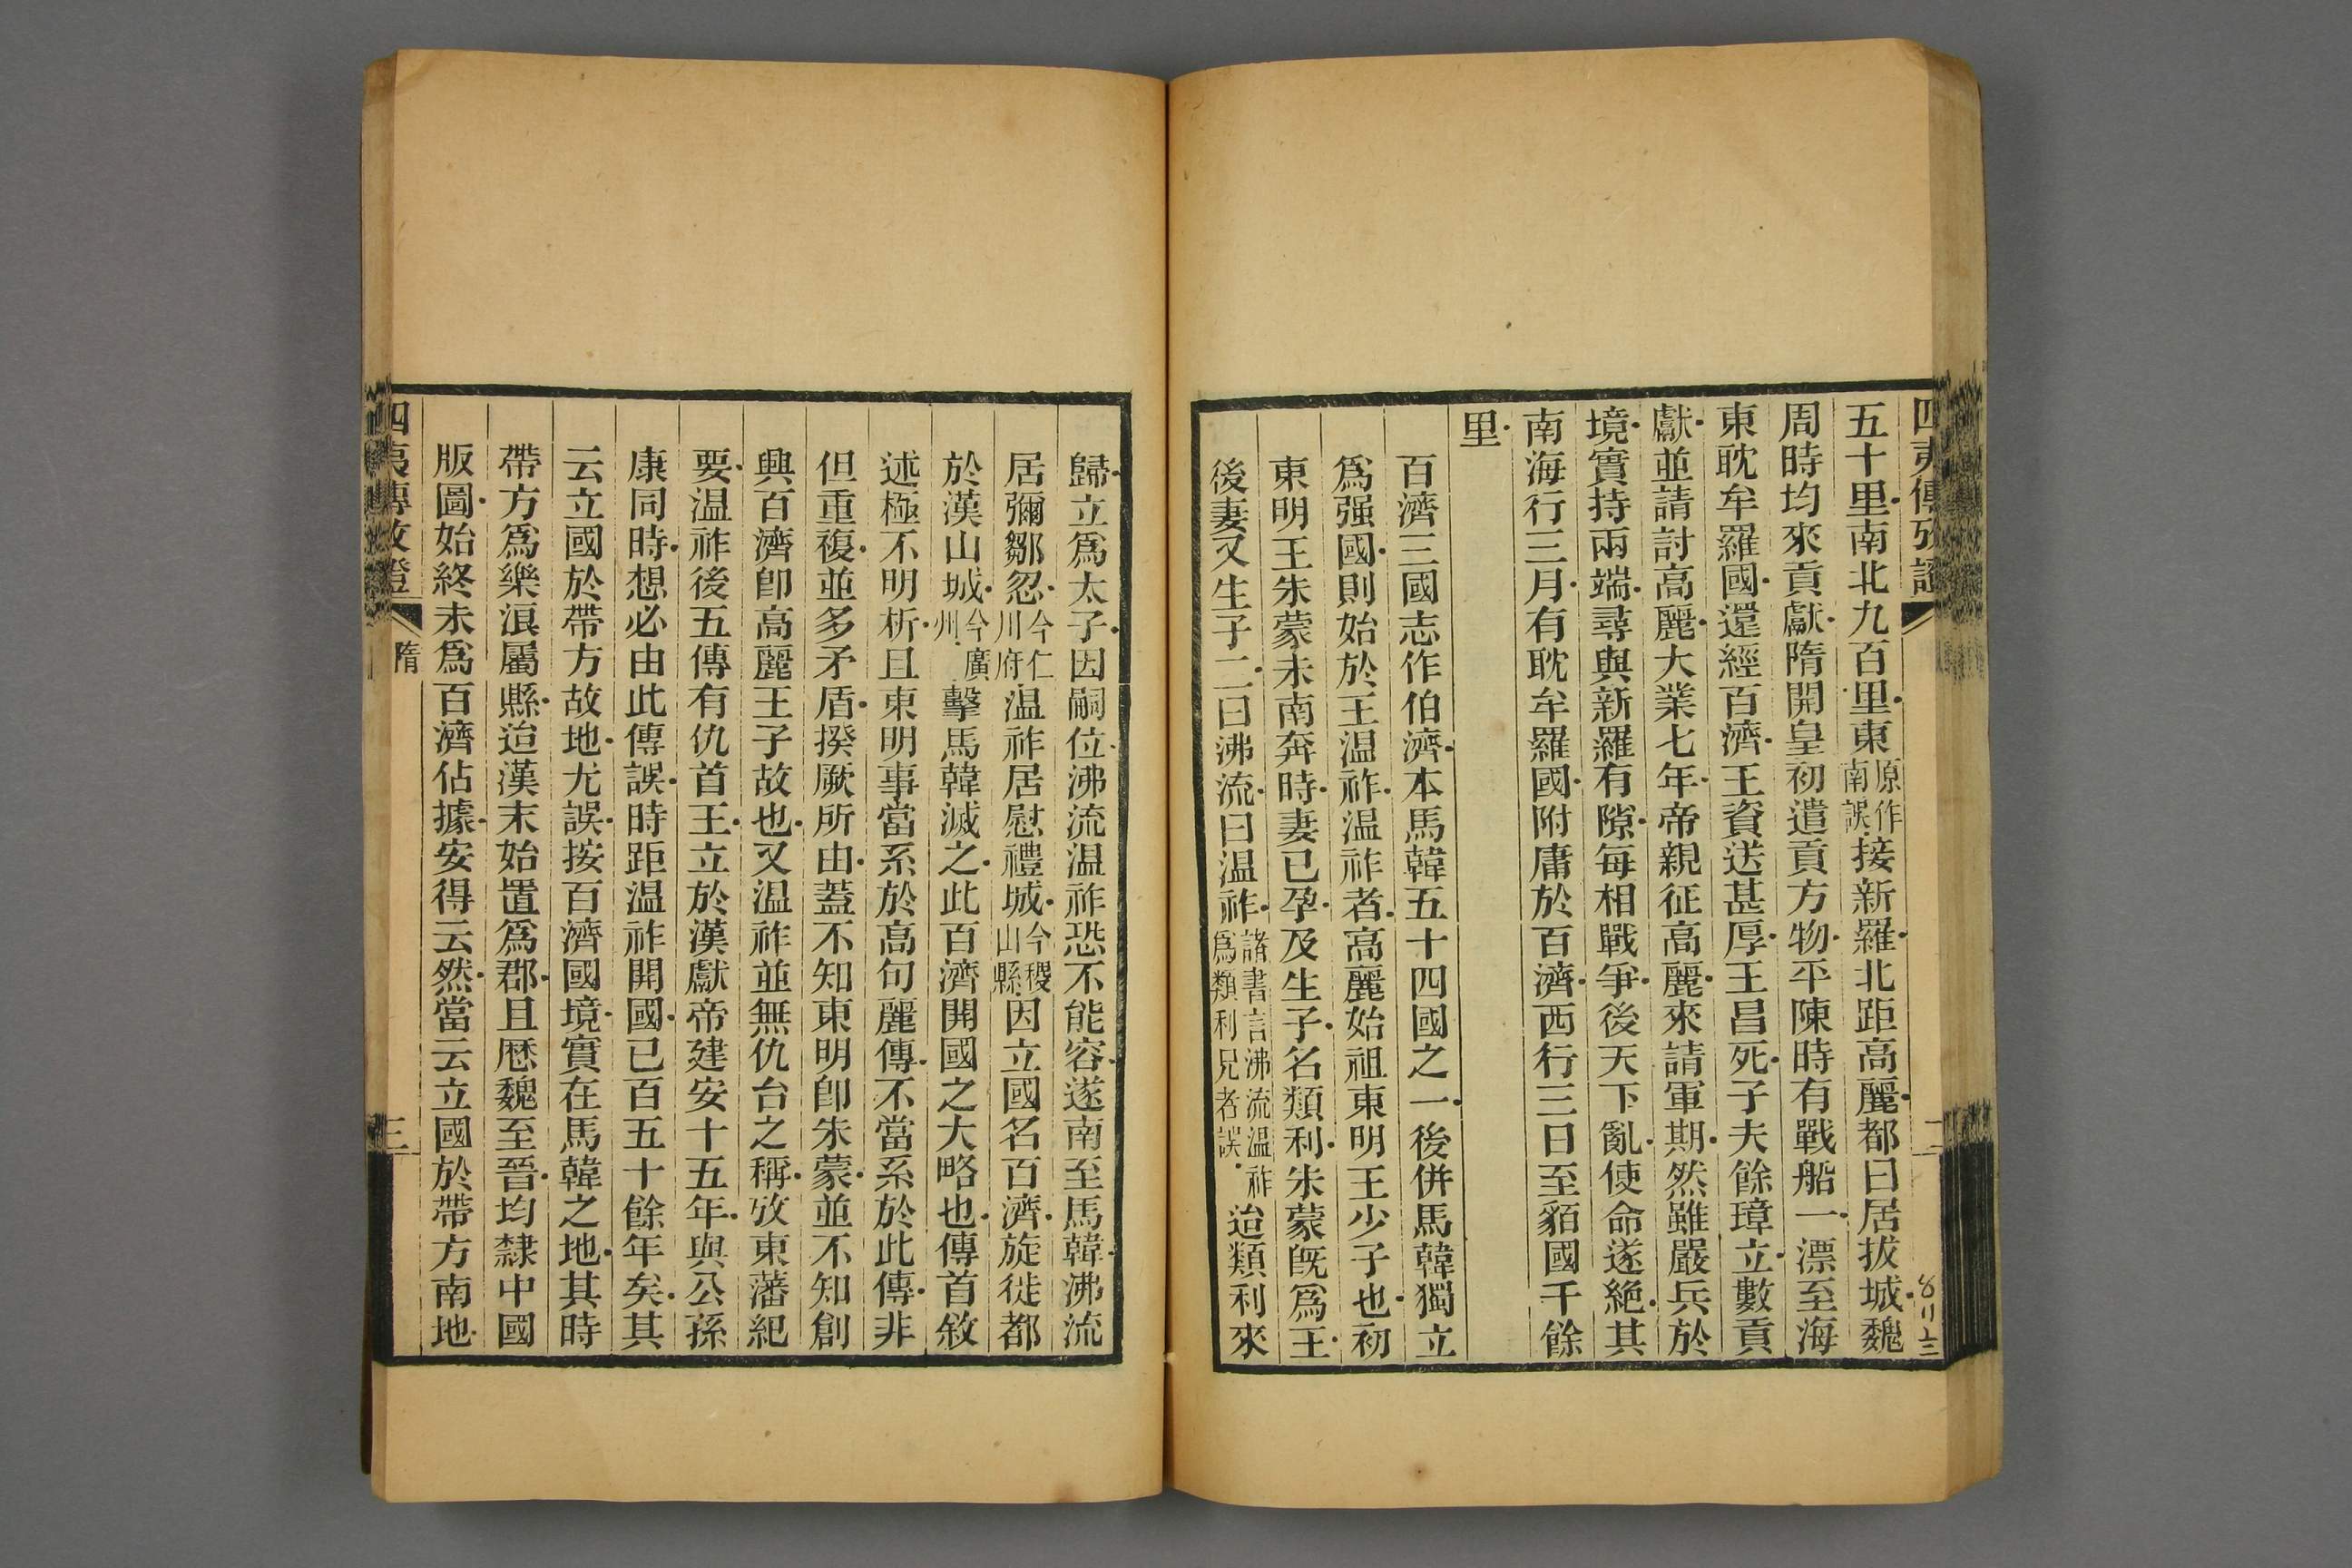 四夷傳攷證
二
五十里南北九百里東原作南誤接新羅北距高麗都曰居拔城魏
周時均來貢獻隋開皇初遣貢方物平陳時有戰船一漂至海
東耽牟羅國還經百濟王資送甚厚王昌死子夫餘璋立數貢
獻並請討高麗大業七年帝親征高麗來請軍期然雖嚴兵於
境實持兩端尋與新羅有隙每相戰爭後天下亂使命遂絶其
南海行三月有耽牟羅國附庸於百濟西行三日至貊國千餘
里
百濟三國志作伯濟本馬韓五十四國之一後併馬韓獨立
爲强國則始於王温祚温祚者高麗始祖東明王少子也初
東明王朱蒙未南奔時妻已孕及生子名類利朱蒙既爲王
後妻又生子二曰沸流曰温祚諸書言沸流温祚爲類利兄者誤迨類利來
歸立爲太子因嗣位沸流温祚恐不能容遂南至馬韓沸流
居彌鄒忍今仁川府温祚居慰禮城今稷山縣因立國名百濟旋徙都
於漢山城今廣州擊馬韓滅之此百濟開國之大略也傳首敘
述極不明析且東明事當系於高句麗傳不當系於此傳非
但重複並多矛盾揆厥所由蓋不知東明卽朱蒙並不知創
興百濟卽高麗王子故也又温祚並無仇台之稱攷東藩紀
要温祚後五傳有仇首王立於漢獻帝建安十五年與公孫
康同時想必由此傳誤時距温祚開國已百五十餘年矣其
云立國於帶方故地尤誤按百濟國境實在馬韓之地其時
帶方爲樂浪屬縣迨漢末始置爲郡且歴魏至晉均隸中國
版圖始終未爲百濟佔據安得云然當云立國於帶方南地
四夷傳攷證
隋
三